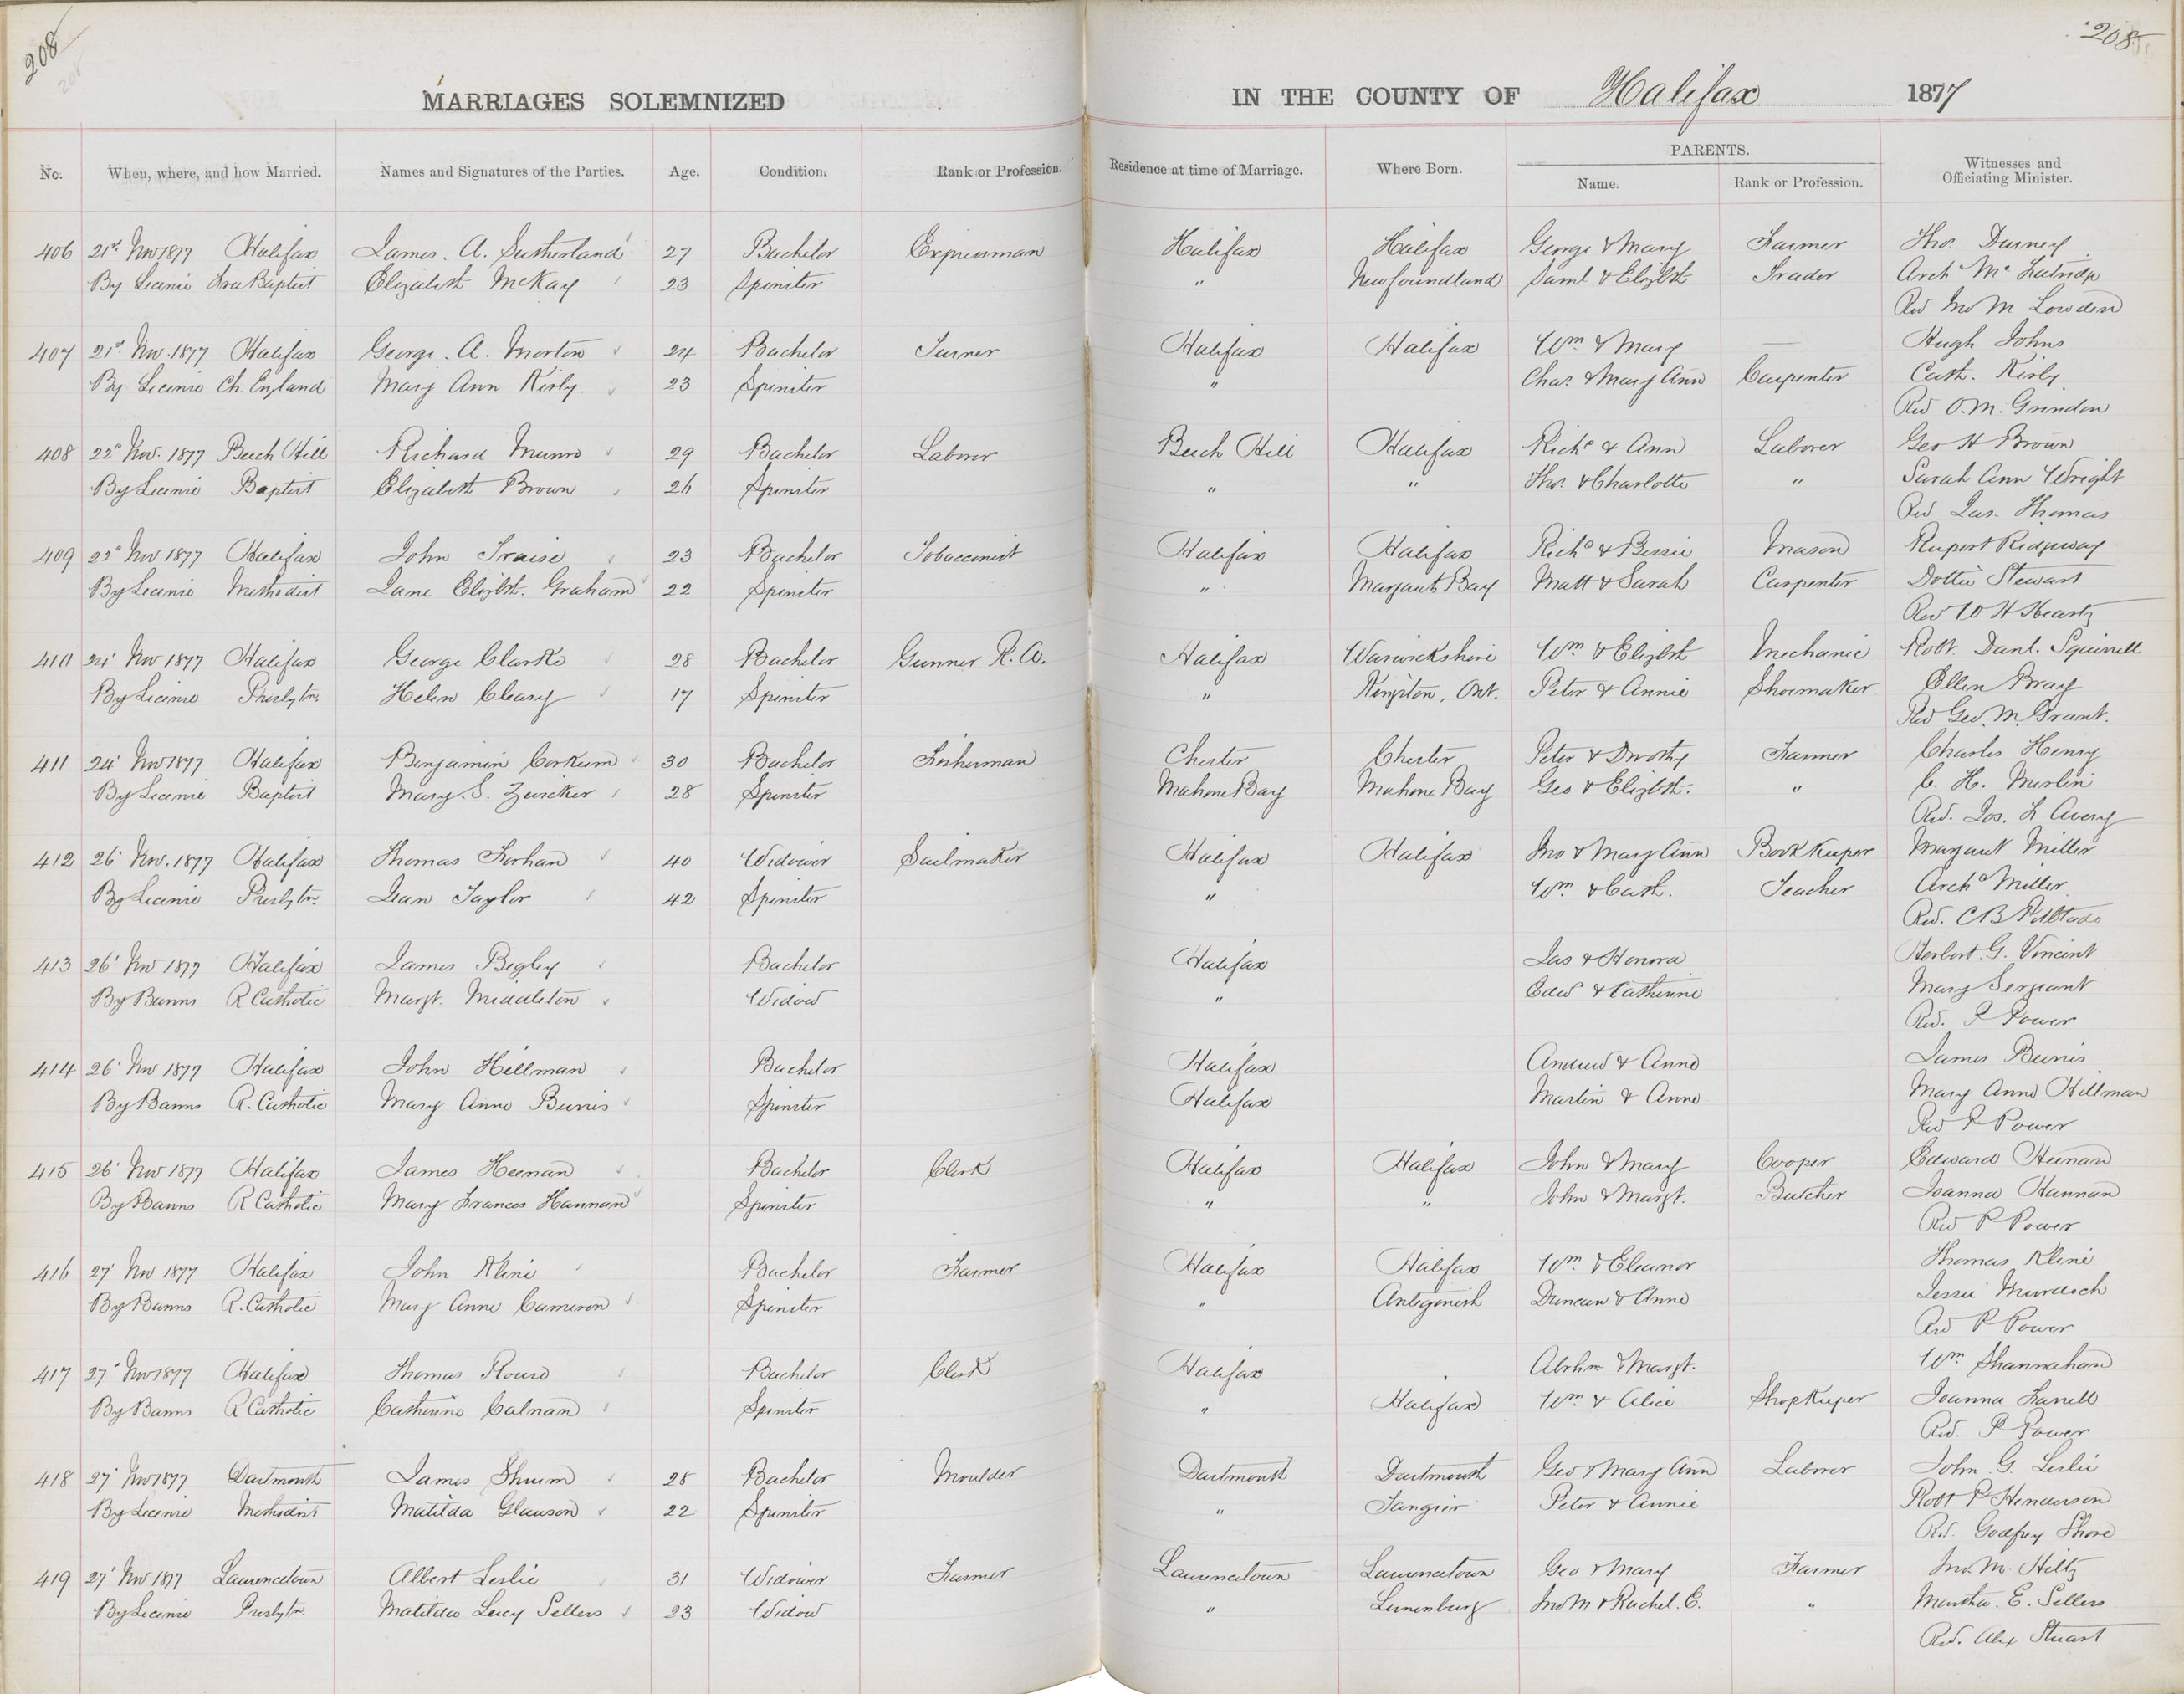 208
208
MARRIAGES SOLEMNIZED IN THE COUNTY OF Halifax 1877
No. When, where, and how Married. Names and Signatures of the Parties. Age. Condition. Rank or Profession. Residence at time of Marriage. Where Born. PARENTS. Name. Rank or Profession. Witnesses and Officiating Minister.
406 21st Nov 1877 Halifax James. A. Sutherland 27 Bachelor Expressman Halifax Halifax George & Mary Farmer Thos. Durney
By License Free Baptist Elizabeth McKay 23 Spinster " Newfoundland Saml & Elizbth Trader Archd Mc
Rev Jno M Lowden
407 21st Nov. 1877 Halifax George. A. Morton 24 Bachelor Turner Halifax Halifax Wm & Mary — Hugh Johns
By License Ch. England Mary Ann Kirby 23 Spinster " Chas. & Mary Ann Carpenter Cath. Kirby
Rev O. M. Grindon
408 22d Nov. 1877 Beech Hill Richard Munro 29 Bachelor Laborer Beech Hill Halifax Richd & Ann Laborer Geo H Brown
By License Baptist Elizabeth Brown 26 Spinster " " Thos. & Charlotte " Sarah Ann Wright
Rev Jas. Thomas
409 22d Nov 1877 Halifax John Traise 23 Bachelor Tobacconist Halifax Halifax Richd & Bessie Mason Rupert Ridgway
By License Methodist Jane Elizbth. Graham 22 Spinster " Margarets Bay Matt & Sarah Carpenter Dottie Stewart
Rev W H Heartz
410 24' Nov 1877 Halifax George Clarke 28 Bachelor Gunner R. A. Halifax Warwickshire Wm & Elizbth Mechanic Robt. Danl. Squirrell
By License Presbytn. Helen Cleary 17 Spinster " Kingston, Ont. Peter & Annie Shoemaker Ellen Bray
Rev Geo. M. Grant.
411 24' Nov 1877 Halifax Benjamin Corkum 30 Bachelor Fisherman Chester Chester Peter & Dorothy Farmer Charles Henry
By License Baptist Mary. S. Zwicker 28 Spinster Mahone Bay Mahone Bay Geo & Elizbth. " C. H. Merlin
Rev. Jos. F Avery
412 26' Nov. 1877 Halifax Thomas Forhan 40 Widower Sailmaker Halifax Halifax Jno & Mary Ann Book Keeper Margaret Miller
By License Presbytn. Jean Taylor 42 Spinster " Wm & Cath. Teacher Archd Miller
Rev. C B Pitblado
413 26' Nov 1877 Halifax James Begley Bachelor Halifax Jas & Honora Herbert. G. Vincent
By Banns R Catholic Margt. Middleton Widow " Edwd & Catherine Mary Sergeant
Rev. P Power
414 26' Nov 1877 Halifax John Hillman Bachelor Halifax Andrew & Anne James Burris
By Banns R. Catholic Mary Anne Burris Spinster Halifax Martin & Anne Mary Anne Hillman
Rev P Power
415 26' Nov 1877 Halifax James Heenan Bachelor Clerk Halifax Halifax John & Mary Cooper Edward Heenan
By Banns R Catholic Mary Frances Hannan Spinster " " John & Margt. Butcher Joanna Hannan
Rev P Power
416 27' Nov 1877 Halifax John Kline Bachelor Farmer Halifax Halifax Wm & Eleanor Thomas Kline
By Banns R. Catholic Mary Anne Cameron Spinster " Antigonish Duncan & Anne Jessie Murdoch
Rev P Power
417 27' Nov 1877 Halifax Thomas Bachelor Clerk Halifax Abrhm & Margt. Wm Shannahan
By Banns R Catholic Catherine Calnan Spinster " Halifax Wm & Alice Shop Keeper Joanna Farrell
Rev. P Power
418 27' Nov 1877 Dartmouth James Shrum 28 Bachelor Moulder Dartmouth Dartmouth Geo & Mary Ann Laborer John G. Leslie
By License Methodist Matilda Glawson 22 Spinster " Tangier Peter & Annie Robt P Henderson
Rev. Godfrey Shore
419 27' Nov 1877 Lawrencetown Albert Leslie 31 Widower Farmer Lawrencetown Lawrencetown Geo & Mary Farmer Jno. M. Hiltz
By License Presbytn. Matilda Lucy Sellers 23 Widow " Lunenburg Jno M & Rachel. E. " Martha. E. Sellers
Rev. Alex Stuart